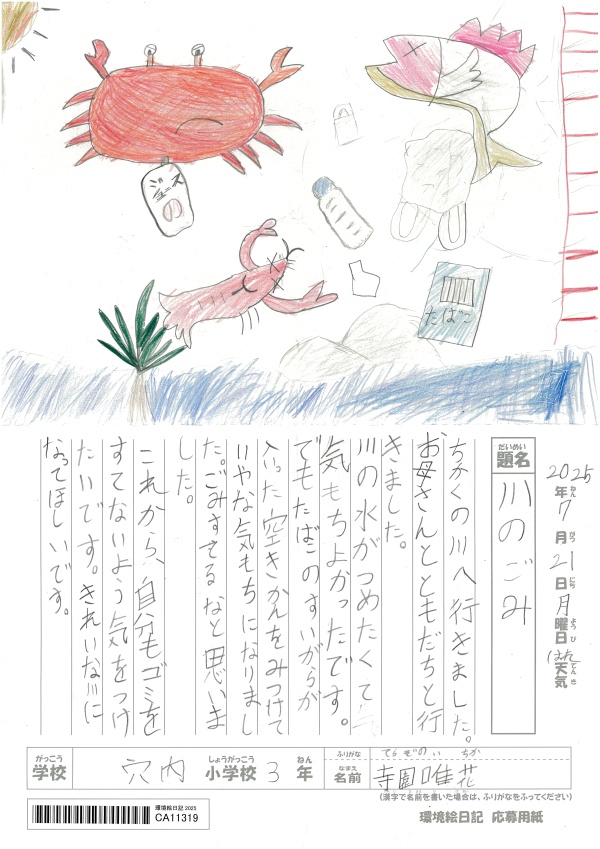 ジュース
たばこ
2025年ねん7月がつ21日にち月曜日ようびはれ天気てんき
題名だいめい
川のごみ
ちかくの川へ行きました。
お母さんとともだちと行
きました。
川の水がつめたくて
気もちよかったです。
でもたばこのすいがらが
入った空きかんをみつけて
いやな気もちになりまし
た。ごみすてるなと思いま
した。
これから、自分もゴミを
すてないよう気をつけ
たいです。きれいな川に
なってほしいです。
がっこう しょうがっこう ねん
学校 穴内 小学校 3 年
ふりがな てらぞの い ちか
なまえ
名前 寺園唯花
(漢字で名前を書いた場合は、ふりがなをふってください)
環境絵日記 2025
CA11319
環境絵日記 応募用紙